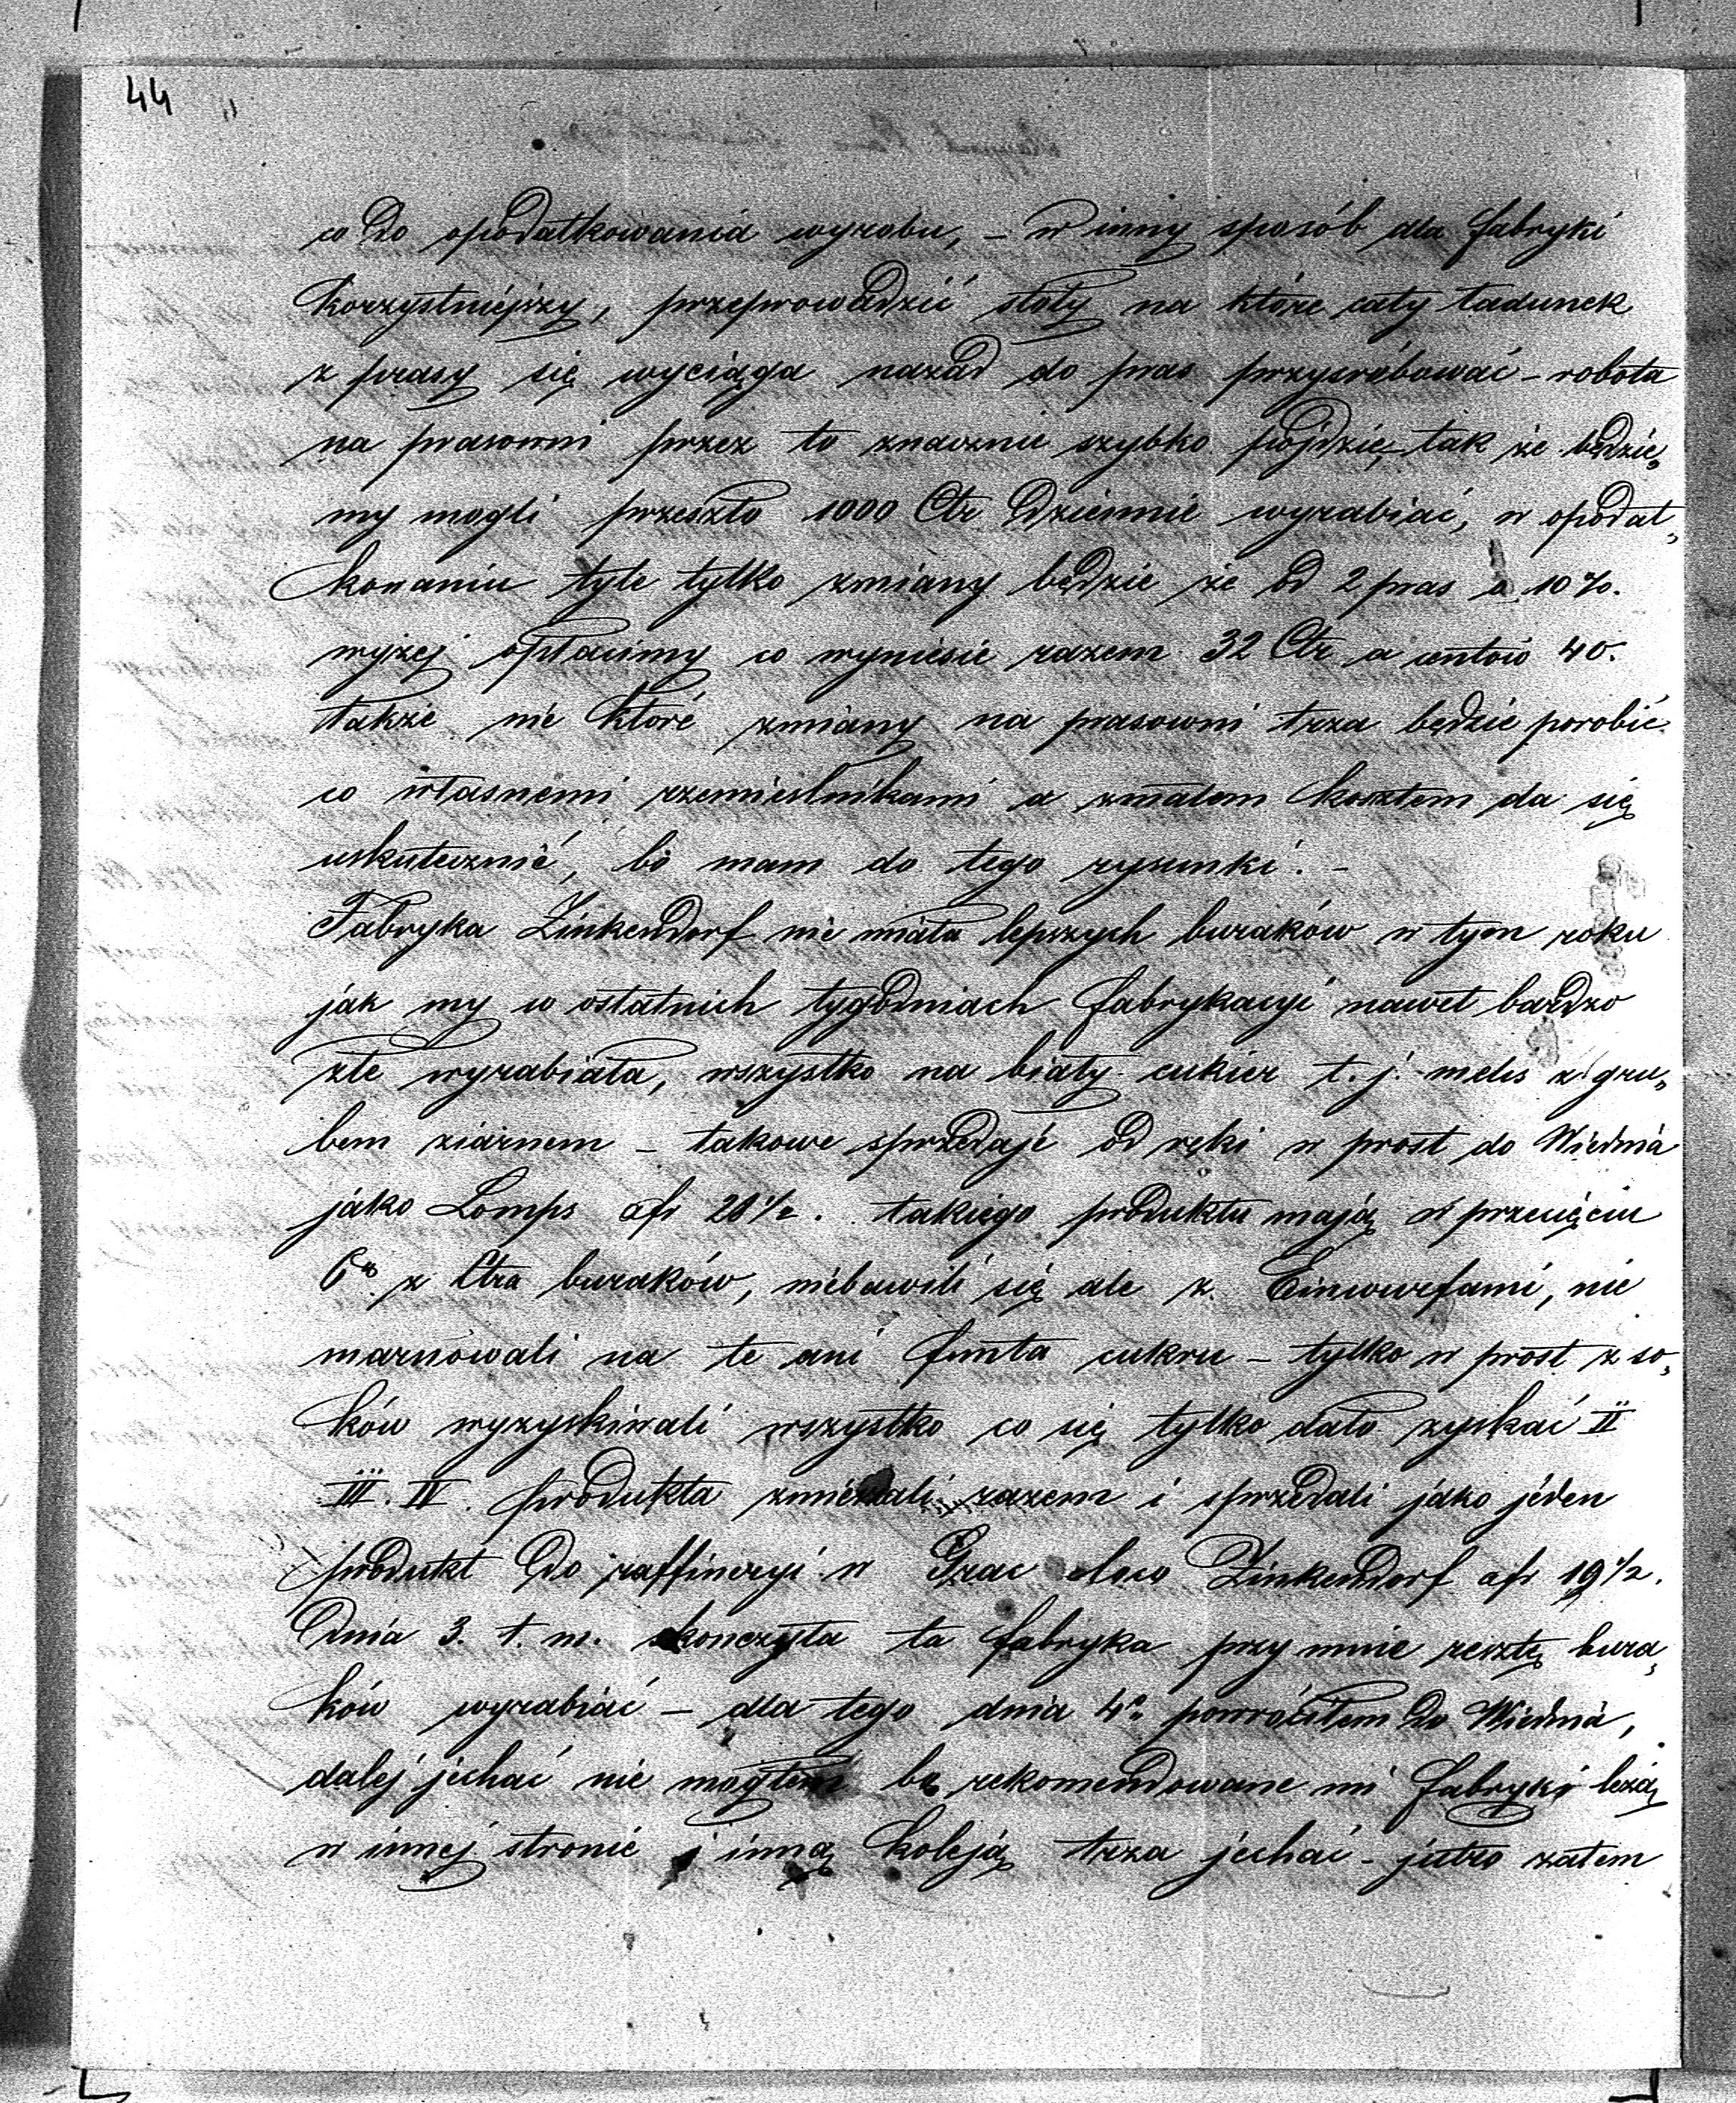 44
co do opodatkowania wyrobu, – w inny sposób dla fabryki
korzystniejszy, przeprowadzić stoły na które cały ładunek
z prasy się wyciąga nazad do pras przysróbować – robota
na prasowni przez to znacznie szybko pójdzie, tak że będzie„
my mogli przeszło 1000 Ctr dziennie wyrabiać, w opodat„
kowaniu tyle tylko zmiany będzie że od 2 pras a 10 %.
wyżej opłacimy co wyniesie razem 32 Ctr a centów 40.
także nie które zmiany na prasowni trza będzie porobić
co własnemi rzemieslnikami a zmałem kosztem da się
uskutecznić, bo mam do tego rysunki. –
Fabryka Zinkendorf nie miała lepszych buraków w tym roku
jak my w ostatnich tygodniach fabrykacyi nawet bardzo
złe wyrabiała, wszystko na biały cukier t. j. melis z gru„
bem ziarnem – takowe sprzedaje od ręki w prost do Wiednia
jako Lomps afr 20 1/2. takiego produktu mają w przecięciu
6 z Ctra buraków, niebawili się ale z Einwurfami, nie
marnowali na te ani funta cukru – tylko w prost z so„
ków wyzyskiwali wszystko co się tylko dało zyskać II
III. IV. produkta zmieszali razem i sprzedali jako jeden
produkt do raffineryi w Grac loco Zinkendorf afr 19 1/2.
Dnia 3. t. m. skonczyła ta fabryka przy mnie resztę bura„
ków wyrabiać – dla tego dnia 4o powróciłem do Wiednia,
dalej jechać nie mogłem bo rekomendowane mi fabryki leżą
w innej stronie i inną koleją trza jechać – jutro zatem